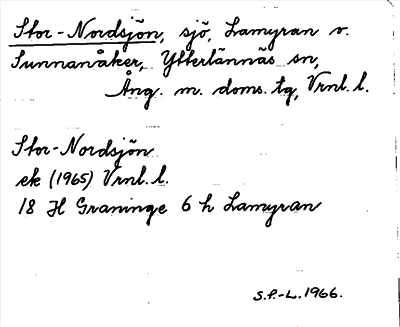 Stor-Nordsjön, sjö, Lamyran v.
Sunnanåker, Ytterlännäs sn,
Ång. m. doms. tg, Vrnl. l.
Stor-Nordsjön
ek (1965) Vrnl. l.
18 H Graninge 6 h Lamyran
S.P.-L. 1966.